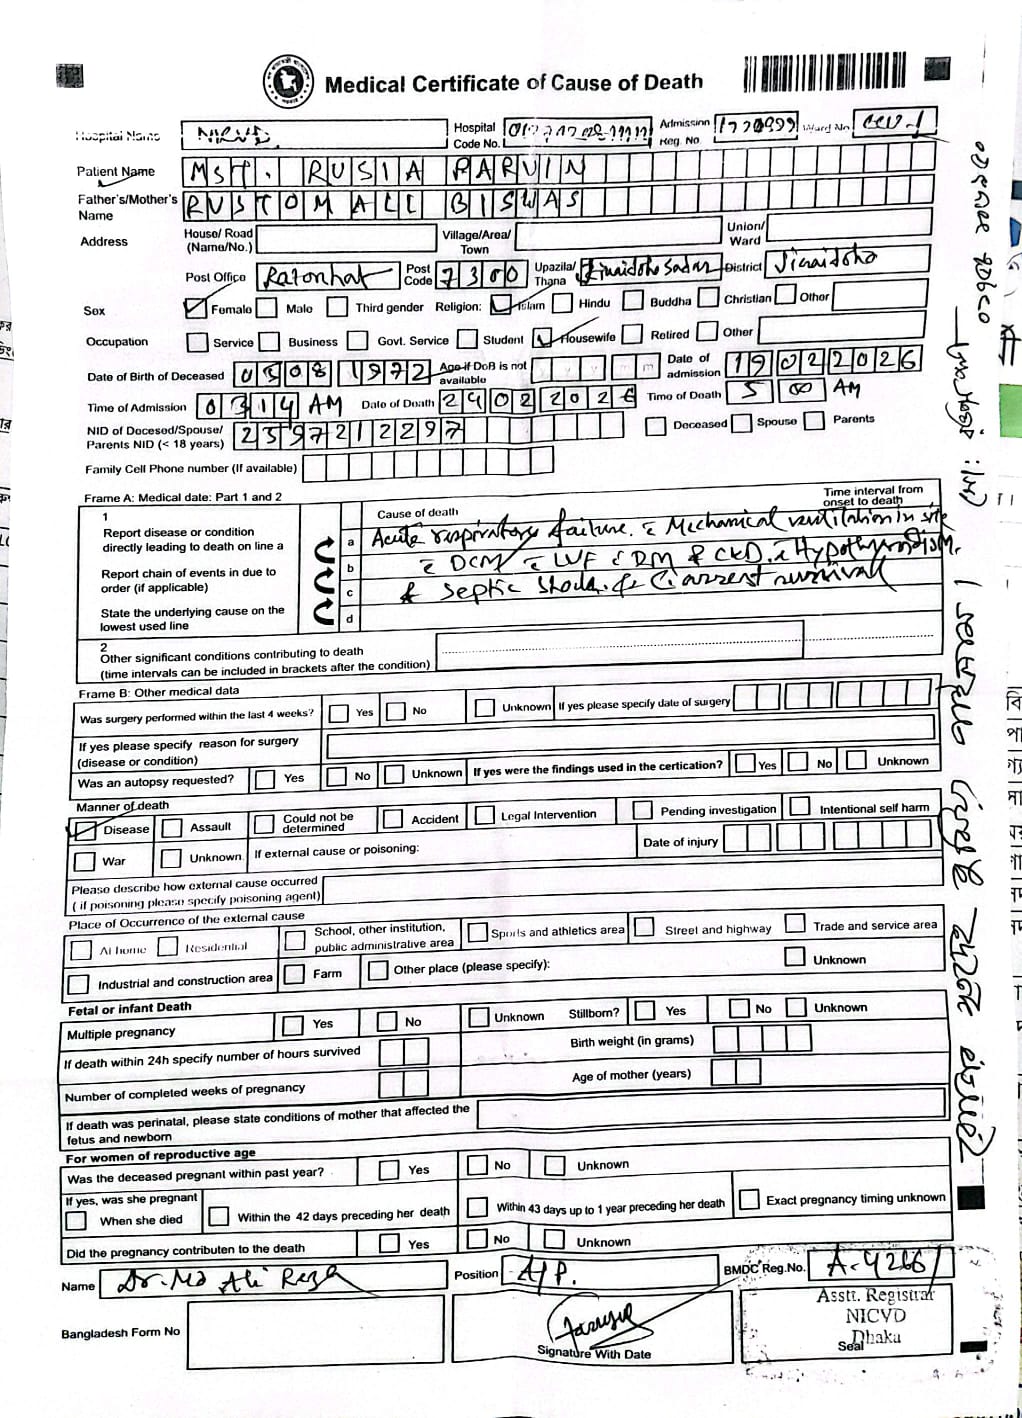 Medical Certificate of Cause of Death
Hospital Name NICVD. Hospital Code No. Admission Reg. No. Ward No CCU-1
Patient Name MST. RUSIA PARVIN
Father's/Mother's Name RUSTOM ALI BISWAS
Address House/ Road (Name/No.) Village/Area/ Town Union/ Ward
Post Office Ratonhat Post Code 7300 Upazila/ Thana Jinaidoho Sadar District Jinaidoho
Sex Female Male Third gender Religion: Islam Hindu Buddha Christian Other
Occupation Service Business Govt. Service Student Housewife Retired Other
Date of Birth of Deceased 05081972 Age if DoB is not available Date of admission 19022026
Time of Admission 0314 AM Date of Death 24022026 Time of Death 5 00 AM
NID of Decesed/Spouse/ Parents NID (< 18 years) 2397212297 Deceased Spouse Parents
Family Cell Phone number (If available)
Frame A: Medical date: Part 1 and 2
1 Cause of death Time interval from onset to death
Report disease or condition directly leading to death on line a
a Acute respiratory failure. c̄ Mechanical ventilation in situ
Report chain of events in due to order (if applicable)
b c̄ DCM c̄ LVF c̄ DM & CKD. c̄ Hypothyroidism.
c & Septic shock. & C. arrest survival
State the underlying cause on the lowest used line
d
2
Other significant conditions contributing to death
(time intervals can be included in brackets after the condition)
Frame B: Other medical data
Was surgery performed within the last 4 weeks? Yes No Unknown If yes please specify date of surgery
If yes please specify reason for surgery (disease or condition)
Was an autopsy requested? Yes No Unknown If yes were the findings used in the certication? Yes No Unknown
Manner of death
Disease Assault Could not be determined Accident Legal Intervention Pending investigation Intentional self harm
War Unknown If external cause or poisoning: Date of injury
Please describe how external cause occurred
( if poisoning please specify poisoning agent)
Place of Occurrence of the external cause
At home Residential School, other institution, public administrative area Sports and athletics area Street and highway Trade and service area
Industrial and construction area Farm Other place (please specify): Unknown
Fetal or infant Death
Multiple pregnancy Yes No Unknown Stillborn? Yes No Unknown
If death within 24h specify number of hours survived Birth weight (in grams)
Number of completed weeks of pregnancy Age of mother (years)
If death was perinatal, please state conditions of mother that affected the fetus and newborn
For women of reproductive age
Was the deceased pregnant within past year? Yes No Unknown
If yes, was she pregnant
When she died Within the 42 days preceding her death Within 43 days up to 1 year preceding her death Exact pregnancy timing unknown
Did the pregnancy contributen to the death Yes No Unknown
Name Dr. Md Ali Reza Position A/P. BMDC Reg.No. A-42661
Bangladesh Form No Signature With Date Seal
Asstt. Registrar
NICVD
Dhaka